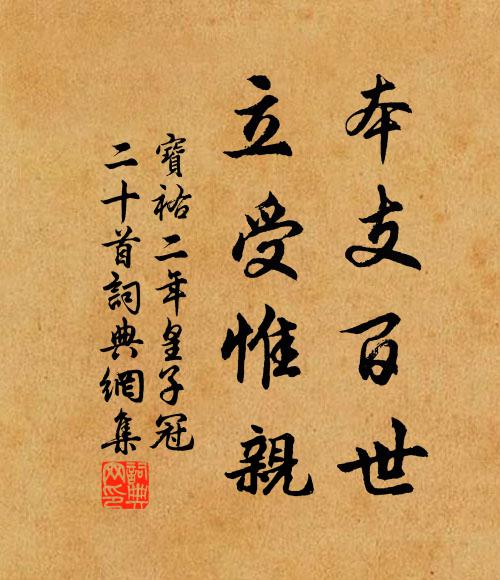 本支百世
立受惟親
寶祐二年皇子冠
二十首詞典網集
詞典
网印